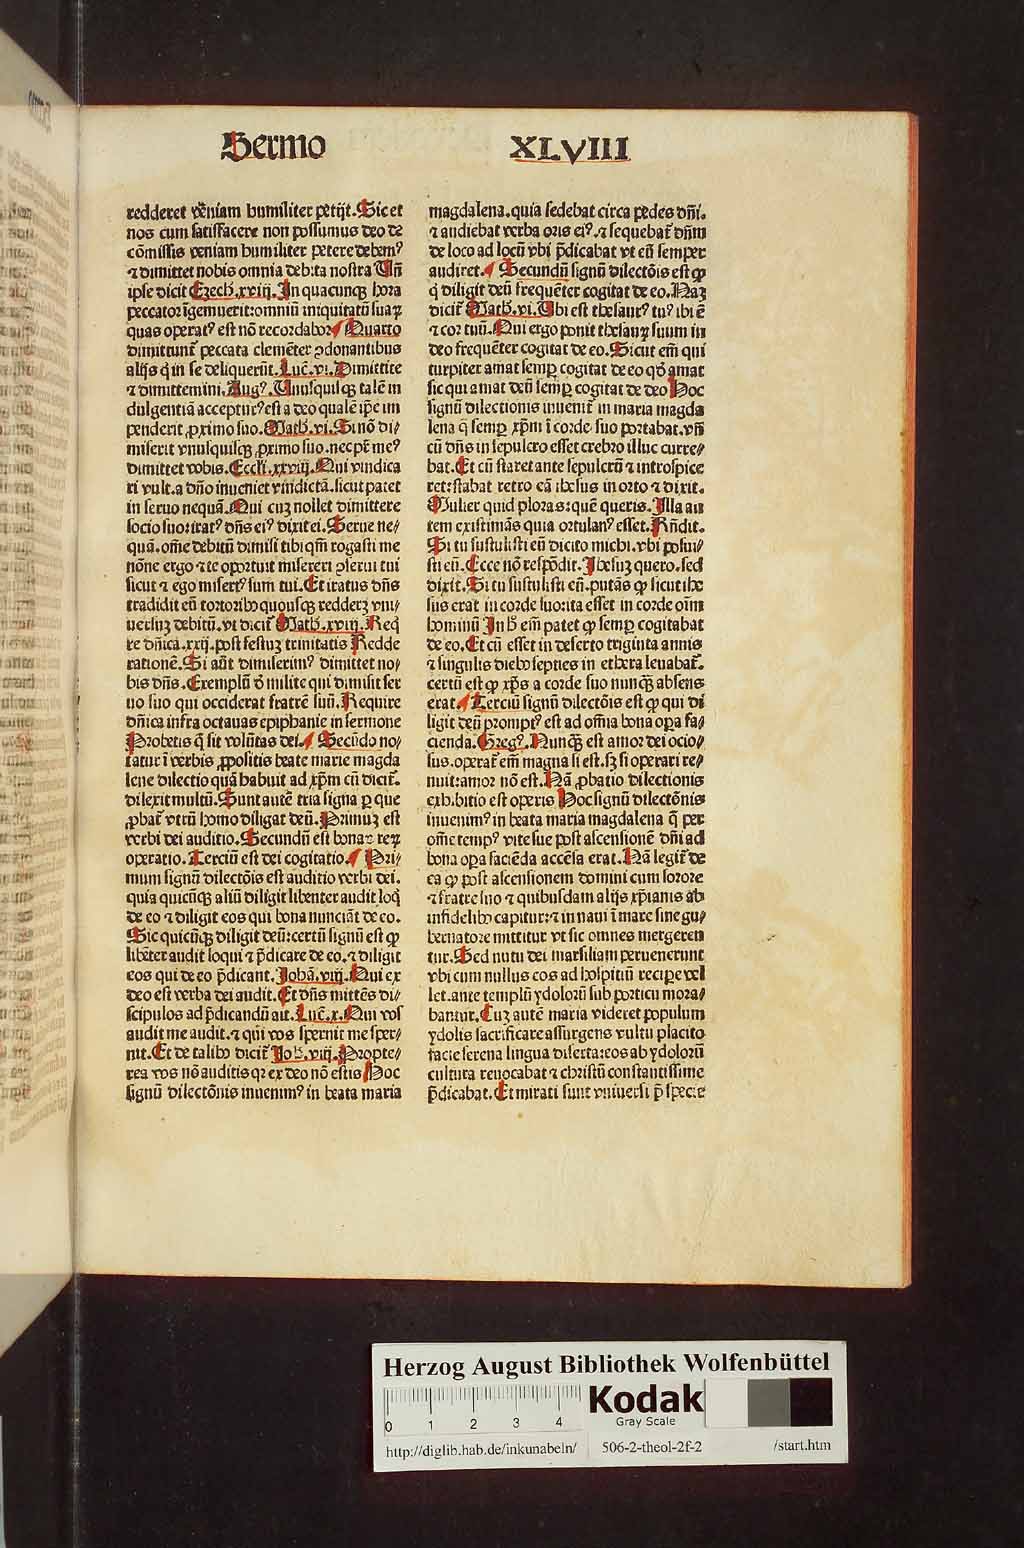 Sermo XLVIII
redderet veniam humiliter petijt. Sic et
nos cum satisfacere non possumus deo de
cōmissis veniam humiliter petere debemꝰ
⁊ dimittet nobis omnia debita nostra Vn̄
ipse dicit Ezech. xviij. In quacunqꝫ hora
peccator īgemuerit: omniū iniquitatū suaꝝ
quas operatꝰ est nō recordabor Quarto
dimittunt᷑ peccata clemēter ꝯdonantibus
alijs q̇ in se deliquerūt. Luc̄. vi. Dimittite
⁊ dimittemini. Augꝰ. Vnusquisqꝫ talē in
dulgentiā accepturꝰ est a deo qualē ip̄e im
penderit ꝓximo suo. Math. vi. Si nō di⸗
miserit vnusquisqꝫ ꝓximo suo. nec pr̄ meꝰ
dimittet vobis. Eccl̄i. xxviij. Qui vindica
ri vult. a dño inueniet vindictā. sicut patet
in seruo nequā. Qui cuꝫ nollet dimittere
socio suo: iratꝰ dñs eiꝰ dixit ei. Serue ne⸗
quā. om̄e debitū dimisi tibi qm̄ rogasti me
nōne ergo ⁊ te oportuit misereri ꝯserui tui
sicut ⁊ ego misertꝰ sum tui. Et iratus dñs
tradidit eū tortoribꝰ quousqꝫ redderꝫ vni⸗
uersuꝫ debitū. vt dicit᷑ Math. xviij. Req̇
re dñica. xxij. post festuꝫ trinitatis Redde
rationē. Si aūt dimiserimꝰ dimittet no⸗
bis dñs. Exemplū d̄ milite qui dimisit ser
uo suo qui occiderat fratrē suū. Require
dñica infra octauas epiphanie in sermone
Probetis q̄ sit volūtas dei. Secūdo no⸗
tatur ī verbis ꝓpositis beate marie magda
lene dilectio quā habuit ad xp̄m cū dicit᷑.
dilexit multū. Sunt autē tria signa ꝑ que
ꝓbat᷑ vtrū homo diligat deū. Primuꝫ est
verbi dei auditio. Secundū est bonaꝝ reꝝ
operatio. Terciū est dei cogitatio. Pri⸗
mum signū dilectōis est auditio verbi dei.
quia quicūqꝫ aliū diligit libenter audit loq̇
de eo ⁊ diligit eos qui bona nunciāt de eo.
Sic quicūqꝫ diligit deū: certū signū est ꝙ
libēter audit loqui ⁊ p̄dicare de eo. ⁊ diligit
eos qui de eo p̄dicant. Johā. viij. Qui ex
deo est verba dei audit. Et dñs mittēs di⸗
scipulos ad p̄dicandū ait. Luc̄. x. Qui vos
audit me audit. ⁊ qui vos spernit me sper⸗
nit. Et de talibꝰ dicit᷑ Joh. viij. Propte⸗
rea vos nō auditis qꝛ ex deo nō estis Hoc
signū dilectōnis inuenimꝰ in beata maria
magdalena. quia sedebat circa pedes dñi.
⁊ audiebat verba oris eiꝰ. ⁊ sequebat᷑ dñm
de loco ad locū vbi p̄dicabat vt eū semper
audiret. Secundū signū dilectōis est ꝙ
q̇ diligit deū frequēter cogitat de eo. Naꝫ
dicit᷑ Math. vi. Vbi est thesaurꝰ tuꝰ ibi ē
⁊ cor tuū. Qui ergo ponit thesauꝝ suum in
deo frequēter cogitat de eo. Sicut em̄ qui
turpiter amat semꝑ cogitat de eo qd̓ amat
sic qui amat deū semꝑ cogitat de deo Hoc
signū dilectionis inuenit᷑ in maria magda
lena q̄ semꝑ xp̄m ī corde suo portabat. vn̄
cū dñs in sepulcro esset crebro illuc curre⸗
bat. Et cū staret ante sepulcrū ⁊ introspice
ret: stabat retro eā ihesus in orto ⁊ dixit.
Mulier quid ploras: quē queris. Illa au
tem existimās quia ortulanꝰ esset. Rn̄dit.
Si tu sustulisti eū dicito michi. vbi posui⸗
sti eū. Ecce nō respōdit. Jhesuꝫ quero. sed
dixit. Si tu sustulisti eū. putās ꝙ sicut ihe
sus erat in corde suo: ita esset in corde oīm
hominū Inh em̄ patet ꝙ semꝑ cogitabat
de eo. Et cū esset in deserto triginta annis
⁊ singulis diebꝰ septies in ethera leuabat᷑.
certū est ꝙ xp̄s a corde suo nunqꝫ absens
erat. Terciū signū dilectōis est ꝙ qui di
ligit deū promptꝰ est ad om̄ia bona oꝑa fa⸗
cienda. Gregꝰ. Nunqꝫ est amor dei ocio⸗
sus. operat᷑ em̄ magna si est. sꝫ si operari re⸗
nuit: amor nō est. Nā ꝓbatio dilectionis
exhibitio est operis Hoc signū dilectōnis
inuenimꝰ in beata maria magdalena q̄ per
om̄e tempꝰ vite sue post ascensionē dñi ad
bona oꝑa faciēda accēsa erat. Nā legit᷑ de
ea ꝙ post ascensionem domini cum sorore
⁊ fratre suo ⁊ quibusdam alijs xp̄ianis ab
infidelibꝰ capitur: ⁊ in naui ī mare sine gu⸗
bernatore mittitur vt sic omnes mergeren
tur. Sed nutu dei marsiliam peruenerunt
vbi cum nullus eos ad hospitiū recipe vel
let. ante templū ydolorū sub porticu mora⸗
bantur. Cuꝫ autē maria videret populum
ydolis sacrificare assurgens vultu placito
facie serena lingua diserta: eos ab ydolorū
cultura reuocabat ⁊ christū constantissime
p̄dicabat. Et mirati sunt vniuersi p̄ specie
Herzog August Bibliothek Wolfenbüttel
0 1 2 3 4
Kodak
Gray Scale
http://diglib.hab.de/inkunabeln/ 506-2-theol-2f-2 /start.htm